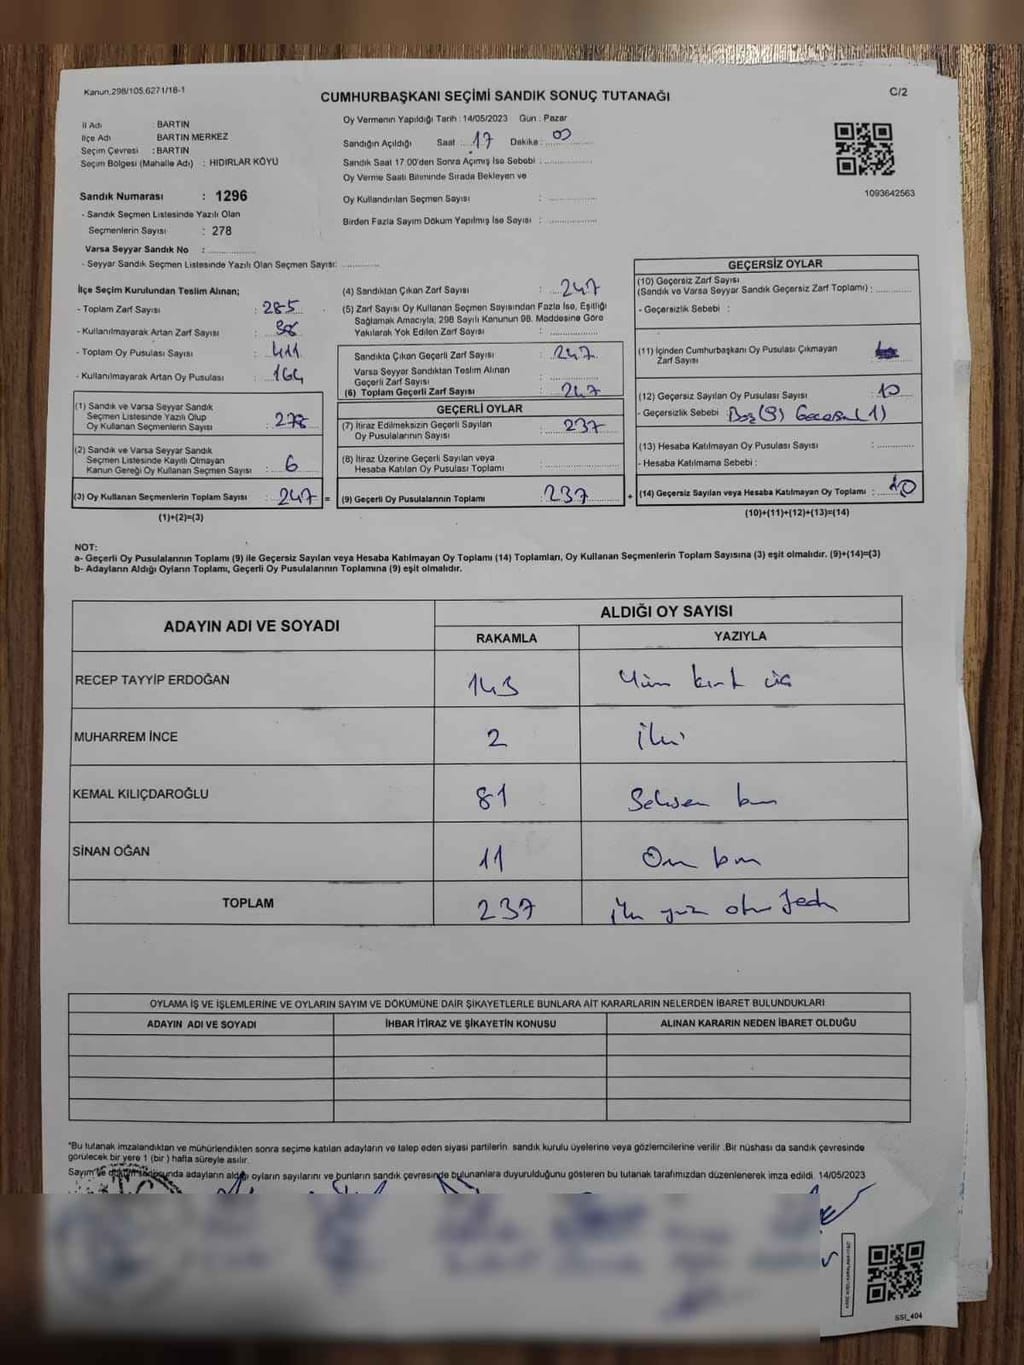 Kanun.298/105.6271/18-1
CUMHURBAŞKANI SEÇİMİ SANDIK SONUÇ TUTANAĞI
C/2
İl Adı BARTIN
İlçe Adı BARTIN MERKEZ
Seçim Çevresi : BARTIN
Seçim Bölgesi (Mahalle Adı) : HIDIRLAR KÖYÜ
Sandık Numarası : 1296
- Sandık Seçmen Listesinde Yazılı Olan
Seçmenlerin Sayısı : 278
Varsa Seyyar Sandık No :
- Seyyar Sandık Seçmen Listesinde Yazılı Olan Seçmen Sayısı:
Oy Vermenin Yapıldığı Tarih : 14/05/2023 Gün : Pazar
Sandığın Açıldığı Saat 17 Dakika : 00
Sandık Saat 17.00'den Sonra Açımış İse Sebebi :
Oy Verme Saati Bitiminde Sırada Bekleyen ve
Oy Kullandırılan Seçmen Sayısı :
Birden Fazla Sayım Döküm Yapılmış İse Sayısı :
1093642563
İlçe Seçim Kurulundan Teslim Alınan;
- Toplam Zarf Sayısı : 285
- Kullanılmayarak Artan Zarf Sayısı : 38
- Toplam Oy Pusulası Sayısı : 411
- Kullanılmayarak Artan Oy Pusulası : 164
(1) Sandık ve Varsa Seyyar Sandık
Seçmen Listesinde Yazılı Olup
Oy Kullanan Seçmenlerin Sayısı :
(2) Sandık ve Varsa Seyyar Sandık
Seçmen Listesinde Kayıtlı Olmayan
Kanun Gereği Oy Kullanan Seçmen Sayısı : 6
(3) Oy Kullanan Seçmenlerin Toplam Sayısı : 247 =
(1)+(2)=(3)
(4) Sandıktan Çıkan Zarf Sayısı : 247
(5) Zarf Sayısı Oy Kullanan Seçmen Sayısından Fazla İse, Eşitliği
Sağlamak Amacıyla, 298 Sayılı Kanunun 98. Maddesine Göre
Yakılarak Yok Edilen Zarf Sayısı :
Sandıkta Çıkan Geçerli Zarf Sayısı : 247
Varsa Seyyar Sandıktan Teslim Alınan
Geçerli Zarf Sayısı :
(6) Toplam Geçerli Zarf Sayısı : 247
GEÇERLİ OYLAR
(7) İtiraz Edilmeksizin Geçerli Sayılan
Oy Pusulalarının Sayısı : 237
(8) İtiraz Üzerine Geçerli Sayılan veya
Hesaba Katılan Oy Pusulası Toplamı :
(9) Geçerli Oy Pusulalarının Toplamı : 237 +
GEÇERSİZ OYLAR
(10) Geçersiz Zarf Sayısı
(Sandık ve Varsa Seyyar Sandık Geçersiz Zarf Toplamı) :
- Geçersizlik Sebebi :
(11) İçinden Cumhurbaşkanı Oy Pusulası Çıkmayan
Zarf Sayısı :
(12) Geçersiz Sayılan Oy Pusulası Sayısı : 10
- Geçersizlik Sebebi : Boş (9) Geçersiz (1)
(13) Hesaba Katılmayan Oy Pusulası Sayısı :
- Hesaba Katılmama Sebebi :
(14) Geçersiz Sayılan veya Hesaba Katılmayan Oy Toplamı : 10
(10)+(11)+(12)+(13)=(14)
NOT:
a- Geçerli Oy Pusulalarının Toplamı (9) ile Geçersiz Sayılan veya Hesaba Katılmayan Oy Toplamı (14) Toplamları, Oy Kullanan Seçmenlerin Toplam Sayısına (3) eşit olmalıdır. (9)+(14)=(3)
b- Adayların Aldığı Oyların Toplamı, Geçerli Oy Pusulalarının Toplamına (9) eşit olmalıdır.
ADAYIN ADI VE SOYADI ALDIĞI OY SAYISI
RAKAMLA YAZIYLA
RECEP TAYYİP ERDOĞAN 143 Yüz kırk üç
MUHARREM İNCE 2 İki
KEMAL KILIÇDAROĞLU 81 Seksen bir
SİNAN OĞAN 11 On bir
TOPLAM 237 İki yüz otuz yedi
OYLAMA İŞ VE İŞLEMLERİNE VE OYLARIN SAYIM VE DÖKÜMÜNE DAİR ŞİKAYETLERLE BUNLARA AİT KARARLARIN NELERDEN İBARET BULUNDUKLARI
ADAYIN ADI VE SOYADI İHBAR İTİRAZ VE ŞİKAYETİN KONUSU ALINAN KARARIN NEDEN İBARET OLDUĞU
*Bu tutanak imzalandıktan ve mühürlendikten sonra seçime katılan adayların ve talep eden siyasi partilerin sandık kurulu üyelerine veya gözlemcilerine verilir. Bir nüshası da sandık çevresinde
görülecek bir yere 1 (bir) hafta süreyle asılır.
Sayım ve döküm sonunda adayların aldığı oyların sayılarını ve bunların sandık çevresinde bulunanlara duyurulduğunu gösteren bu tutanak tarafımızdan düzenlenerek imza edildi. 14/05/2023
SSI_404